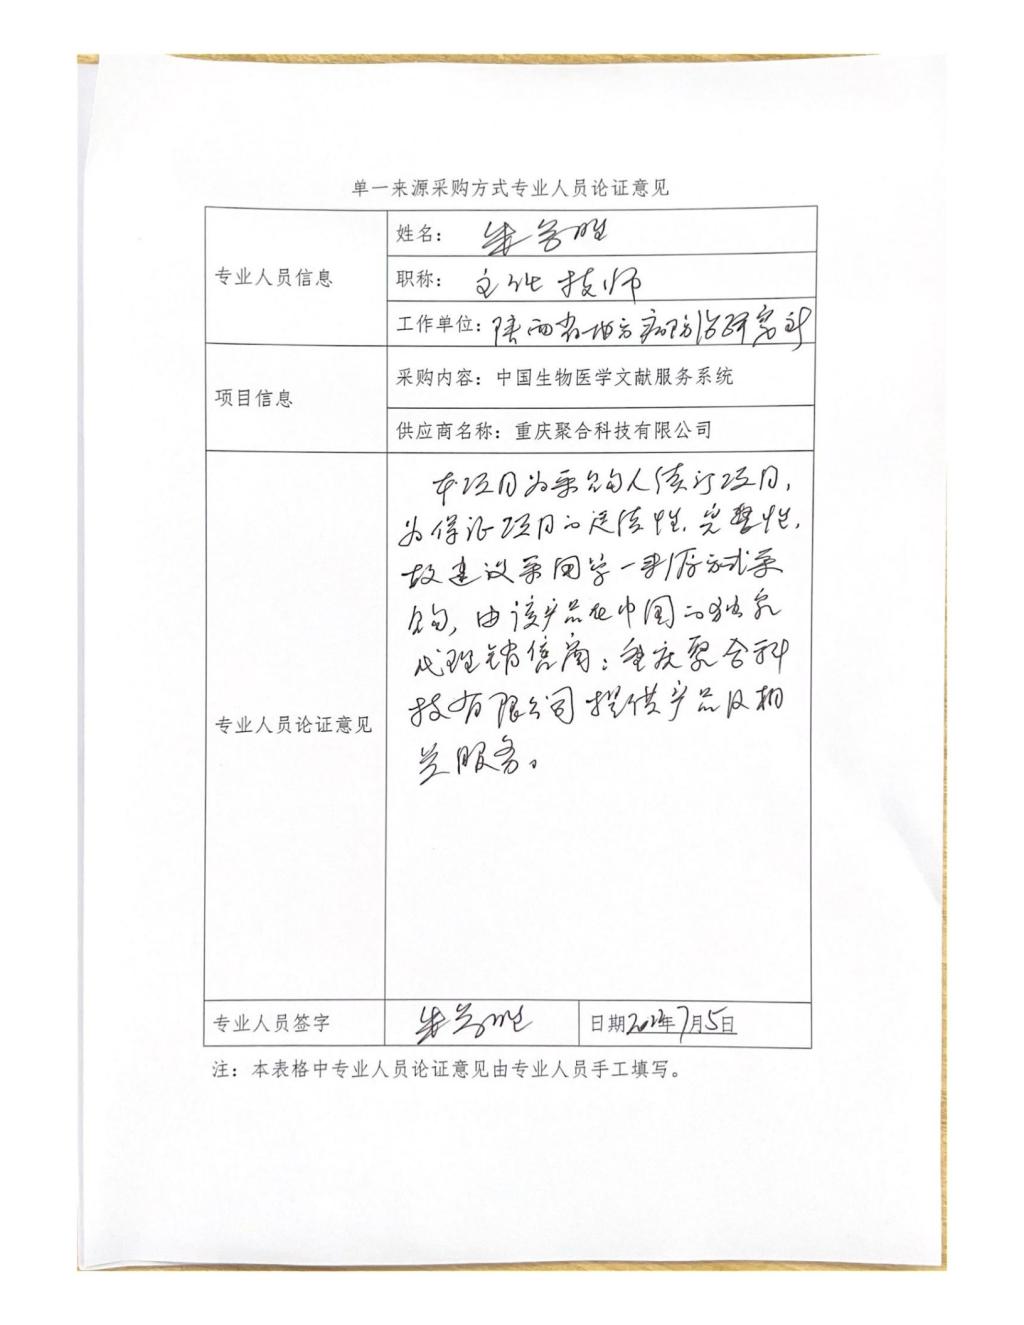 单一来源采购方式专业人员论证意见
专业人员信息
姓名：朱
职称：主任技师
工作单位：陕西省地方病防治研究所
项目信息
采购内容：中国生物医学文献服务系统
供应商名称：重庆聚合科技有限公司
专业人员论证意见
本项目为采购人续订项目，
为保证项目的连续性、完整性，
故建议采用单一来源方式采
购，由该产品在中国的独家
代理销售商：重庆聚合科
技有限公司提供产品及相
关服务。
专业人员签字
朱
日期 年7月5日
注：本表格中专业人员论证意见由专业人员手工填写。